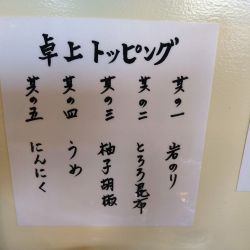 卓上トッピング
其の一 岩のり
其の二 とろろ昆布
其の三 柚子胡椒
其の四 うめ
其の五 にんにく